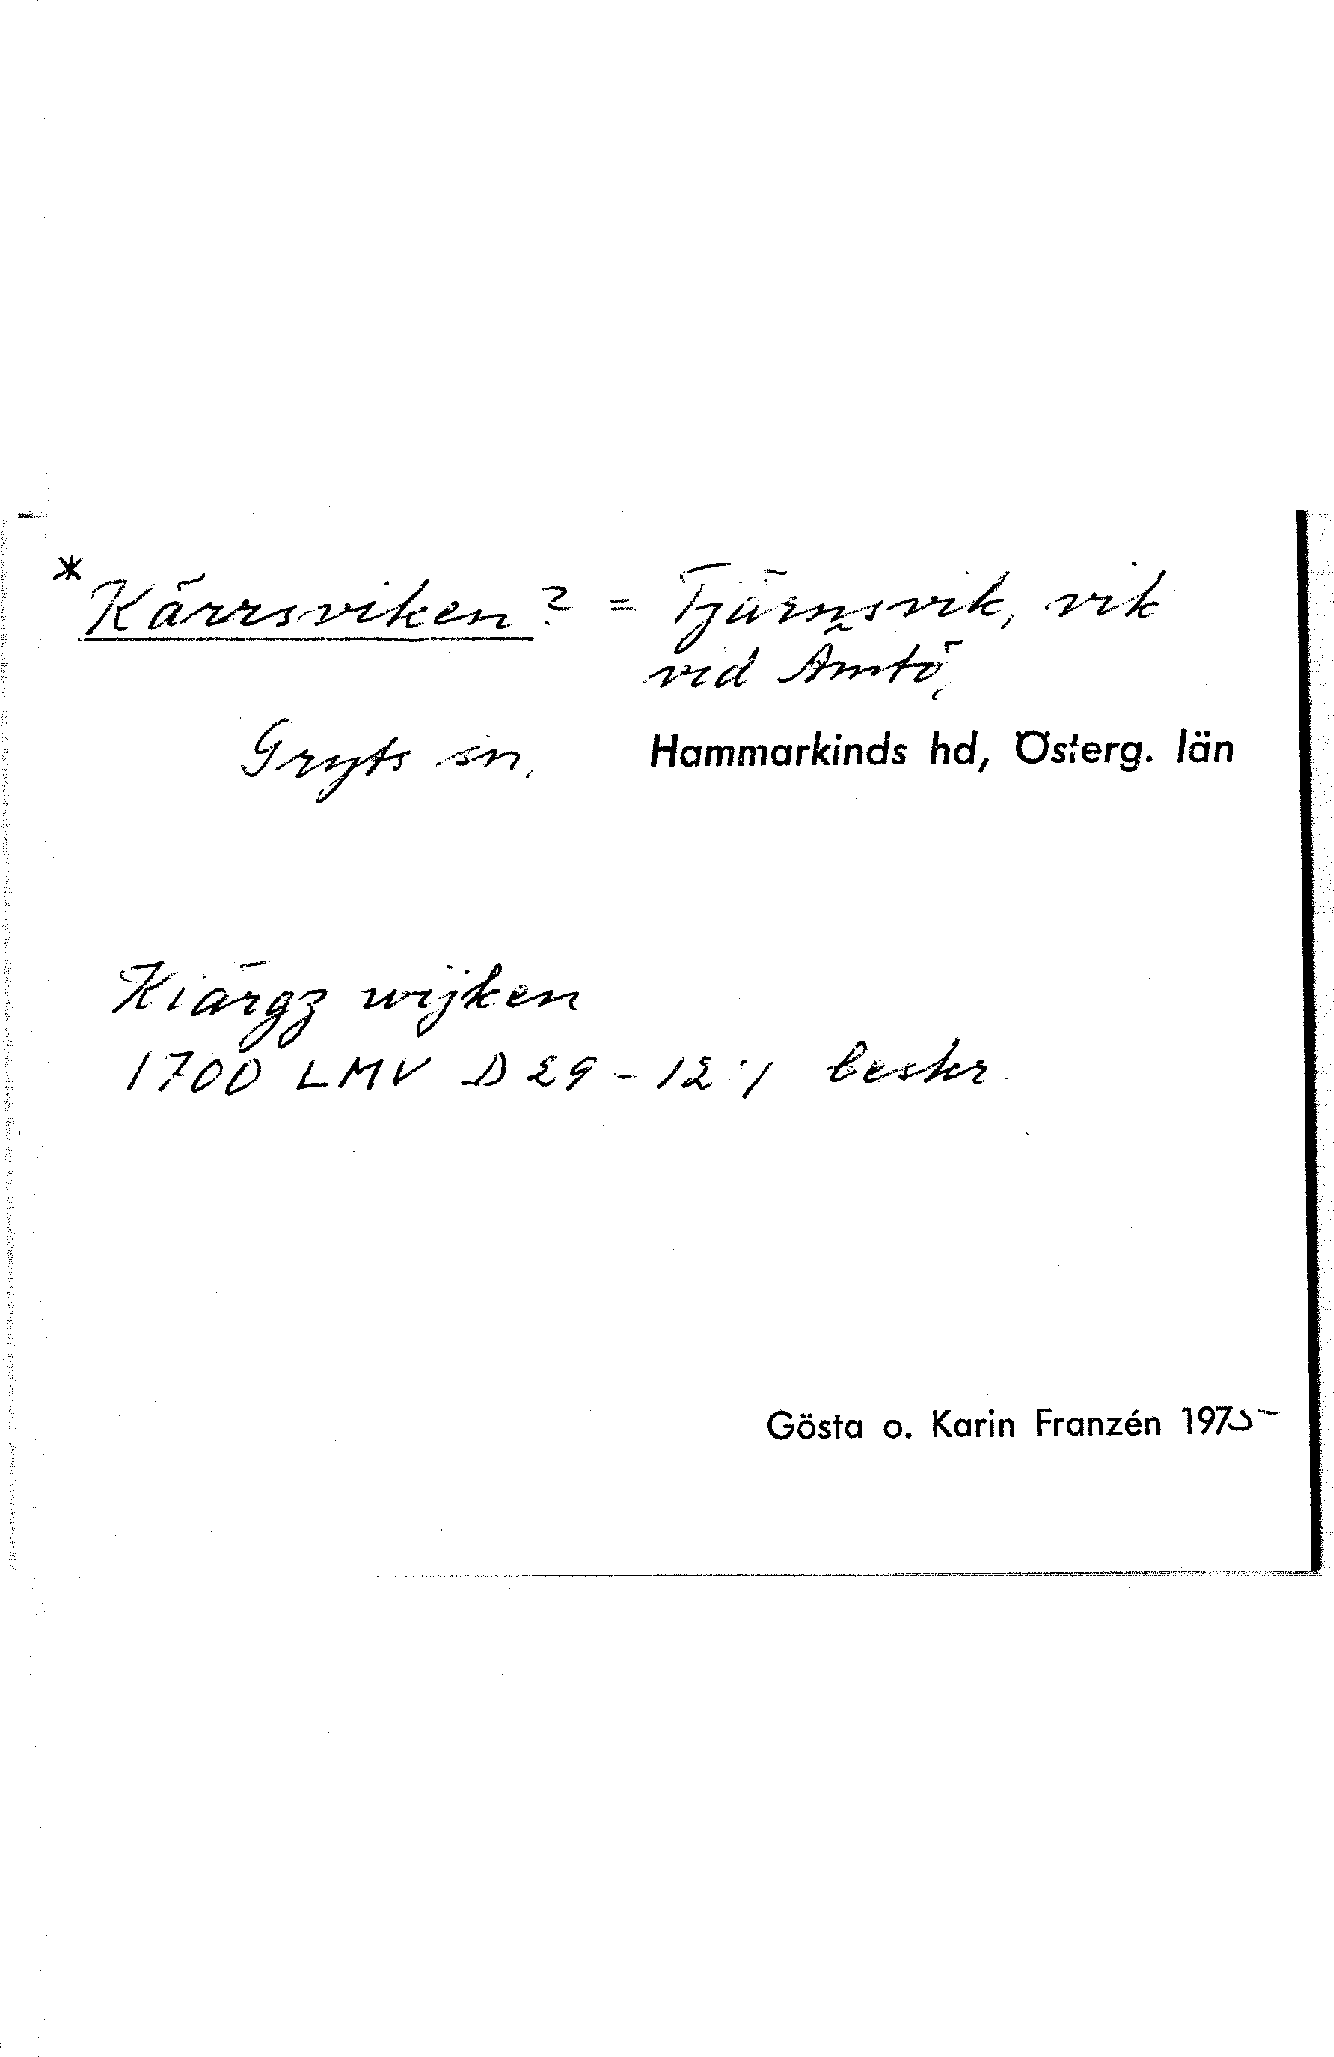 *Kärrsviken? = Tjärnsvik, vik
vid Ämtö,
Gryts sn, Hammarkinds hd, Österg. län
Kiärgz wijken
1700 LMV D29-12:1 beskr.
Gösta o. Karin Franzén 1975